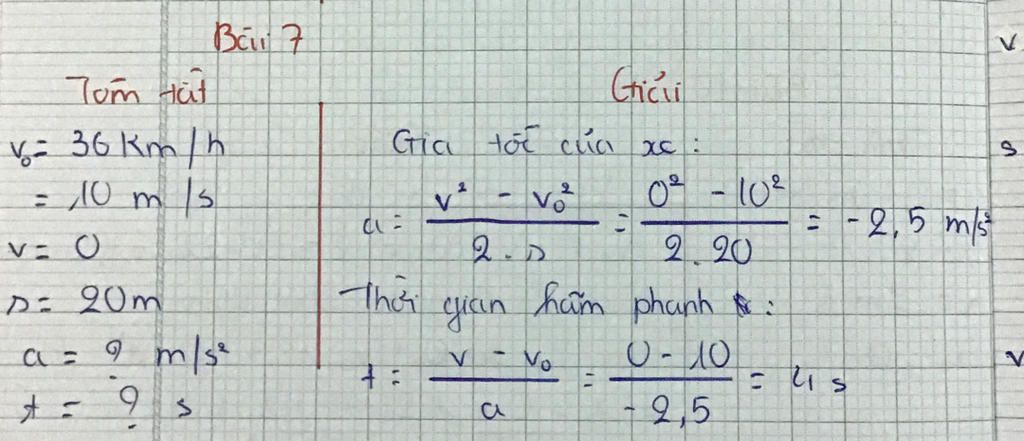 Bài 7
Tóm tắt
v₀ = 36 Km/h
= 10 m/s
v = 0
s = 20m
a = ? m/s²
t = ? s
Giải
Gia tốc của xe:
a = (v² - v₀²)/(2.s) = (0² - 10²)/(2.20) = -2,5 m/s²
Thời gian hãm phanh:
t = (v - v₀)/a = (0 - 10)/(-2,5) = 4 s
v
s
v